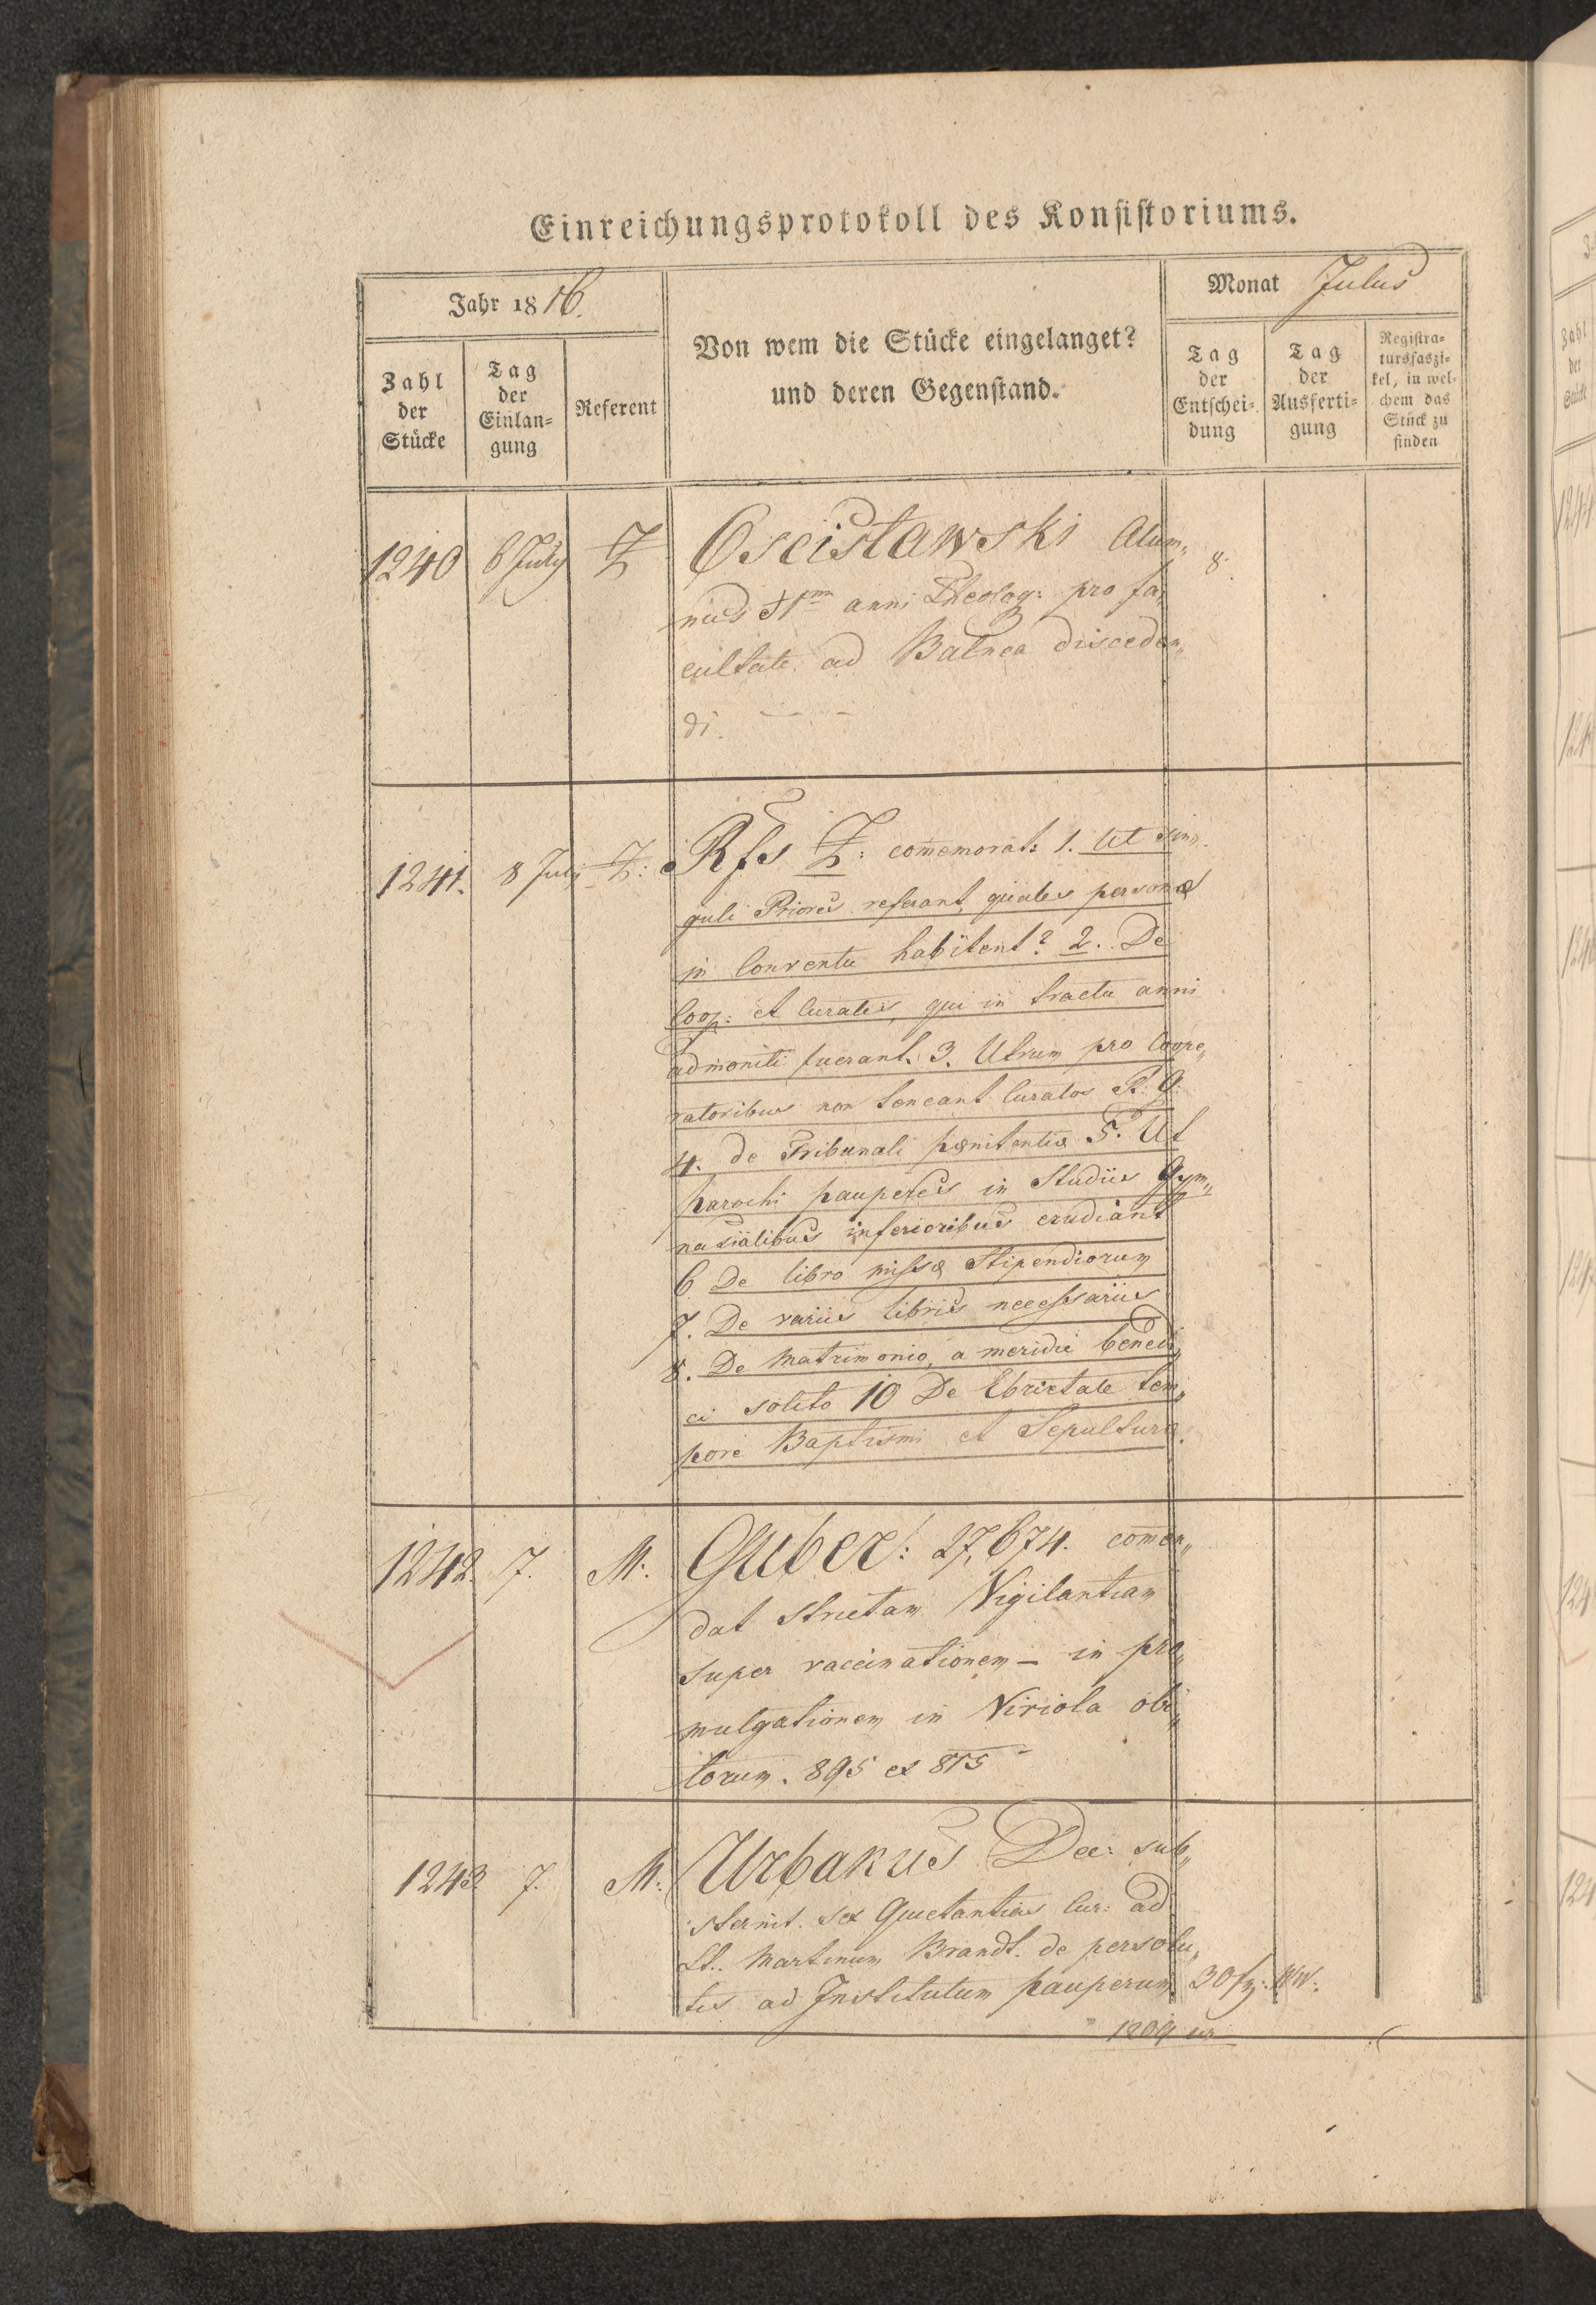 Einreichungsprotokoll des Konsistoriums.
Jahr 1816.
Monat Julius
Zahl der Stücke
Tag der Einlan=gung
Referent
Von wem die Stücke eingelanget?
und deren Gegenstand.
Tag der Entschei=dung
Tag der Ausferti=gung
Registra=tursfaszi=kel, in wel=chem das Stück zu finden
1240 6 July Z Oscisławski Alum„ 8.
nus anni Theolog: pro fa„
cultate ad Balnea disceden„
di.
1241. 8 July Z: Rfs Z: com̄emorat: 1. Ut sin„
guli Priores referant, quales personæ
in Conventu habitent? 2. De
Coop: et Curatis, qui in tractu anni
admoniti fuerant. 3. Utrum pro Coope„
ratoribus non teneant Curatos R. G.
4. de Tribunali pænitentiæ 5. Ut
parochi pauperes in Studiis Gym„
nasialibus inferioribus erudiant
6 De libro missæ Stipendiorum
7. De variis libris necessariis
8. De Matrimonio, a meridie benedi„
ci solito 10 De Ebrietate tem„
pore Baptismi et Sepulturæ.
1242. 7. M. Guber: 27,674. com̄en„
dat strictam Vigilantiam
super vaccinationem – in pro„
mulgationem in Niriola obi„
torum. 895 ex 815
1243 7. M. Urbakus Dec: sub„
sternit sex Quietantias Cur: ad
St. Martinum Brandt. de persolu„
tis ad Institutum pauperum 30 fr: WW.
1809